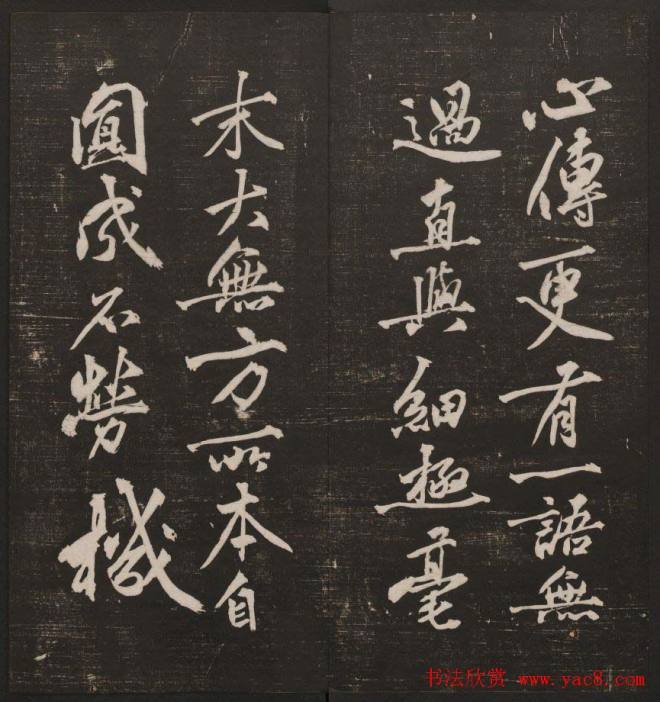 心傳更有一語無
過直與細極毫
末大無方所本自
圓成不勞機
书法欣赏 www.yac8.com